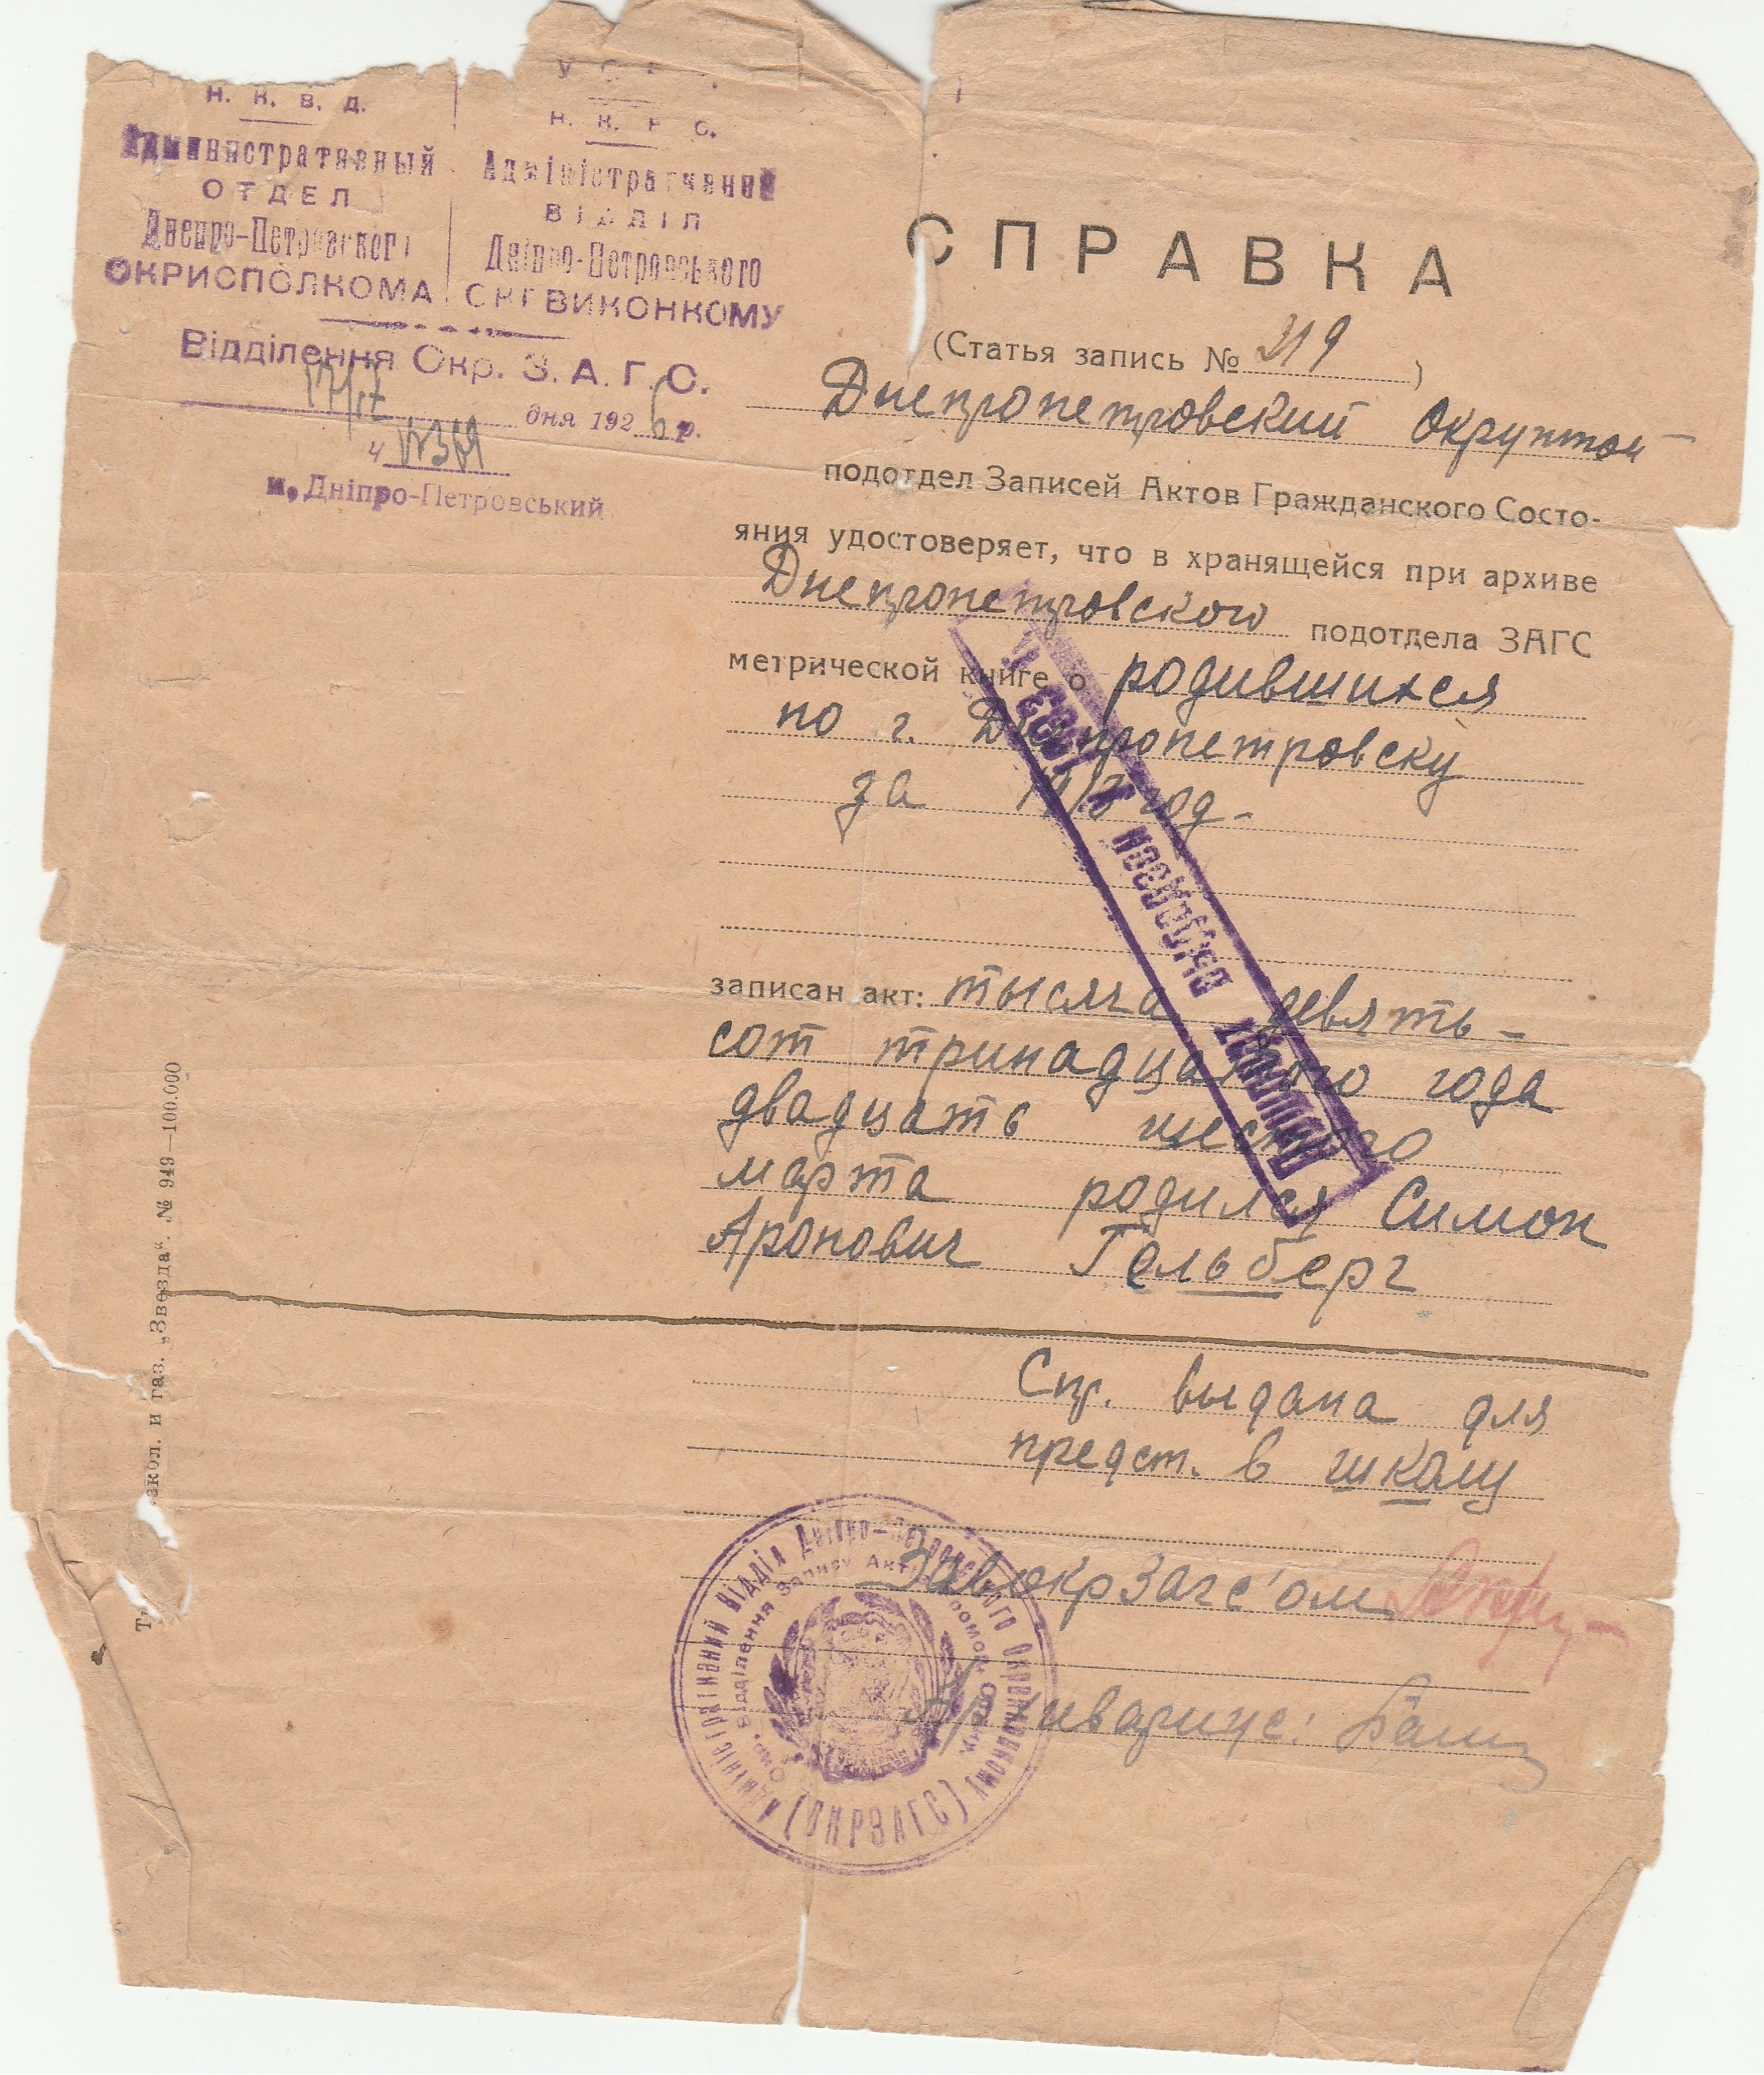 Н. К. В. Д.
Административный
ОТДЕЛ
Днепро-Петровского
ОКРИСПОЛКОМА
Н. К. В. С.
Адміністративний
ВІДДІЛ
Дніпро-Петровського
ОКРВИКОНКОМУ
Відділення Окр. З. А. Г. С.
дня 1926 р.
ч
м. Дніпро-Петровський
СПРАВКА
(Статья запись № 319)
Днепропетровский Окружной
подотдел Записей Актов Гражданского Состо-
яния удостоверяет, что в хранящейся при архиве
Днепропетровского подотдела ЗАГС
метрической книге о родившихся
по г. Днепропетровску
за год.
записан акт: тысяча девять-
сот тринадцатого года
двадцать шестого
марта родился Симон
Аронович Гельберг
Спр. выдана для
предст. в школу
ЗавокрЗагс'ом
Архивариус:
Паспорт выдан
1933 г.
Адміністративний Відділ Дніпро-Петровського Окрвиконкому
(ОКРЗАГС)
Відділення Запису Актів Громад.
зкол. и газ. „Звезда“. № 949—100.000